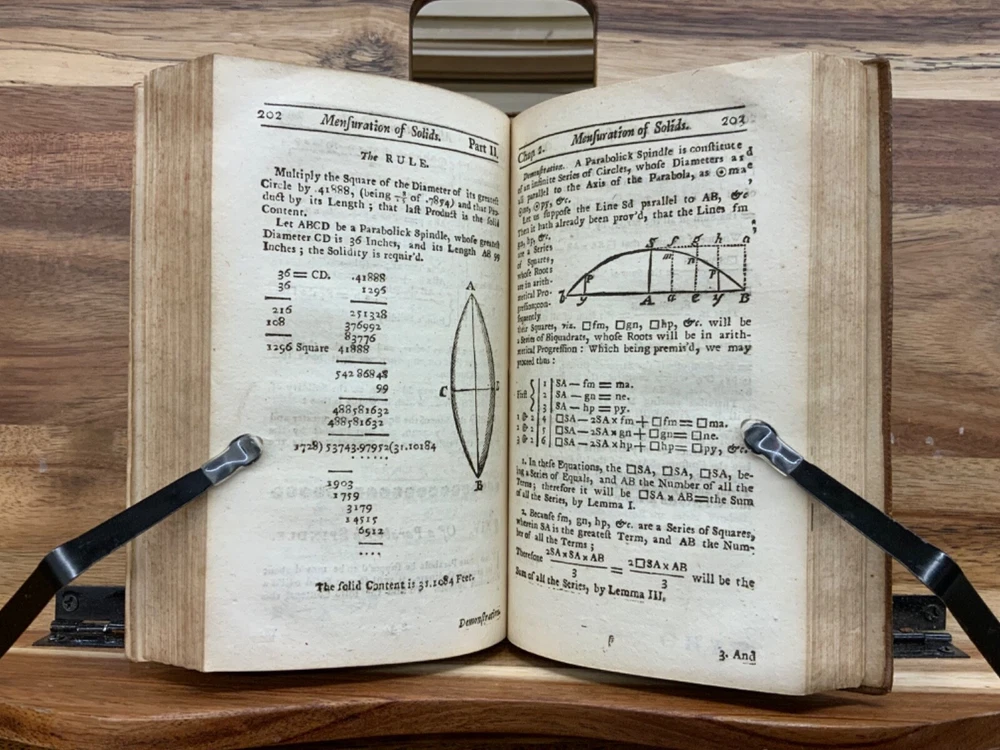 202 Menſuration of Solids. Part II.
The RULE.
Multiply the Square of the Diameter of its greateſt
Circle by .41888, (being 8/15 of .7854) and that Pro-
duct by its Length; that laſt Product is the ſolid
Content.
Let ABCD be a Parabolick Spindle, whoſe greateſt
Diameter CD is 36 Inches, and its Length AB 99
Inches; the Solidity is requir'd.
36 = CD. .41888
36 1296
216 251328
108 376992
83776
1296 Square 41888
542 86848
99
488581632
488581632
1728) 53743.97952(31.10184
1903
1759
3179
14515
6912
....
A
C
B
The ſolid Content is 31.1084 Feet.
Demonſtration.
Chap 2. Menſuration of Solids. 203
Demonſtration. A Parabolick Spindle is conſtitute d
of an infinite Series of Circles, whoſe Diameters are
all parallel to the Axis of the Parabola, as ⊙ma,
⊙ne, ⊙py, &c.
Let us ſuppoſe the Line Sd parallel to AB, &c
Then it hath already been prov'd, that the Lines fm,
gn, hp, &c.
are a Series
of Squares,
whoſe Roots
are in arith-
metical Pro-
greſſion; con-
ſequently
S f g h d
m n p
P
b y A a e y B
their Squares, viz. □fm, □gn, □hp, &c. will be
a Series of Biquadrats, whoſe Roots will be in arith-
metical Progreſſion: Which being premis'd, we may
proceed thus:
Firſt 1 SA — fm = ma.
2 SA — gn = ne.
3 SA — hp = py.
1 & 2 4 □SA — 2SA × fm + □fm = □ma.
2 & 2 5 □SA — 2SA × gn + □gn = □ne.
3 & 2 6 □SA — 2SA × hp + □hp = □py, &c.
1. In theſe Equations, the □SA, □SA, □SA, be-
ing a Series of Equals, and AB the Number of all the
Terms; therefore it will be □SA × AB = the Sum
of all the Series, by Lemma I.
2. Becauſe fm, gn, hp, &c. are a Series of Squares,
wherein SA is the greateſt Term, and AB the Num-
ber of all the Terms;
Therefore 2SA × SA × AB/3 = 2□SA × AB/3 will be the
Sum of all the Series, by Lemma III.
3. And